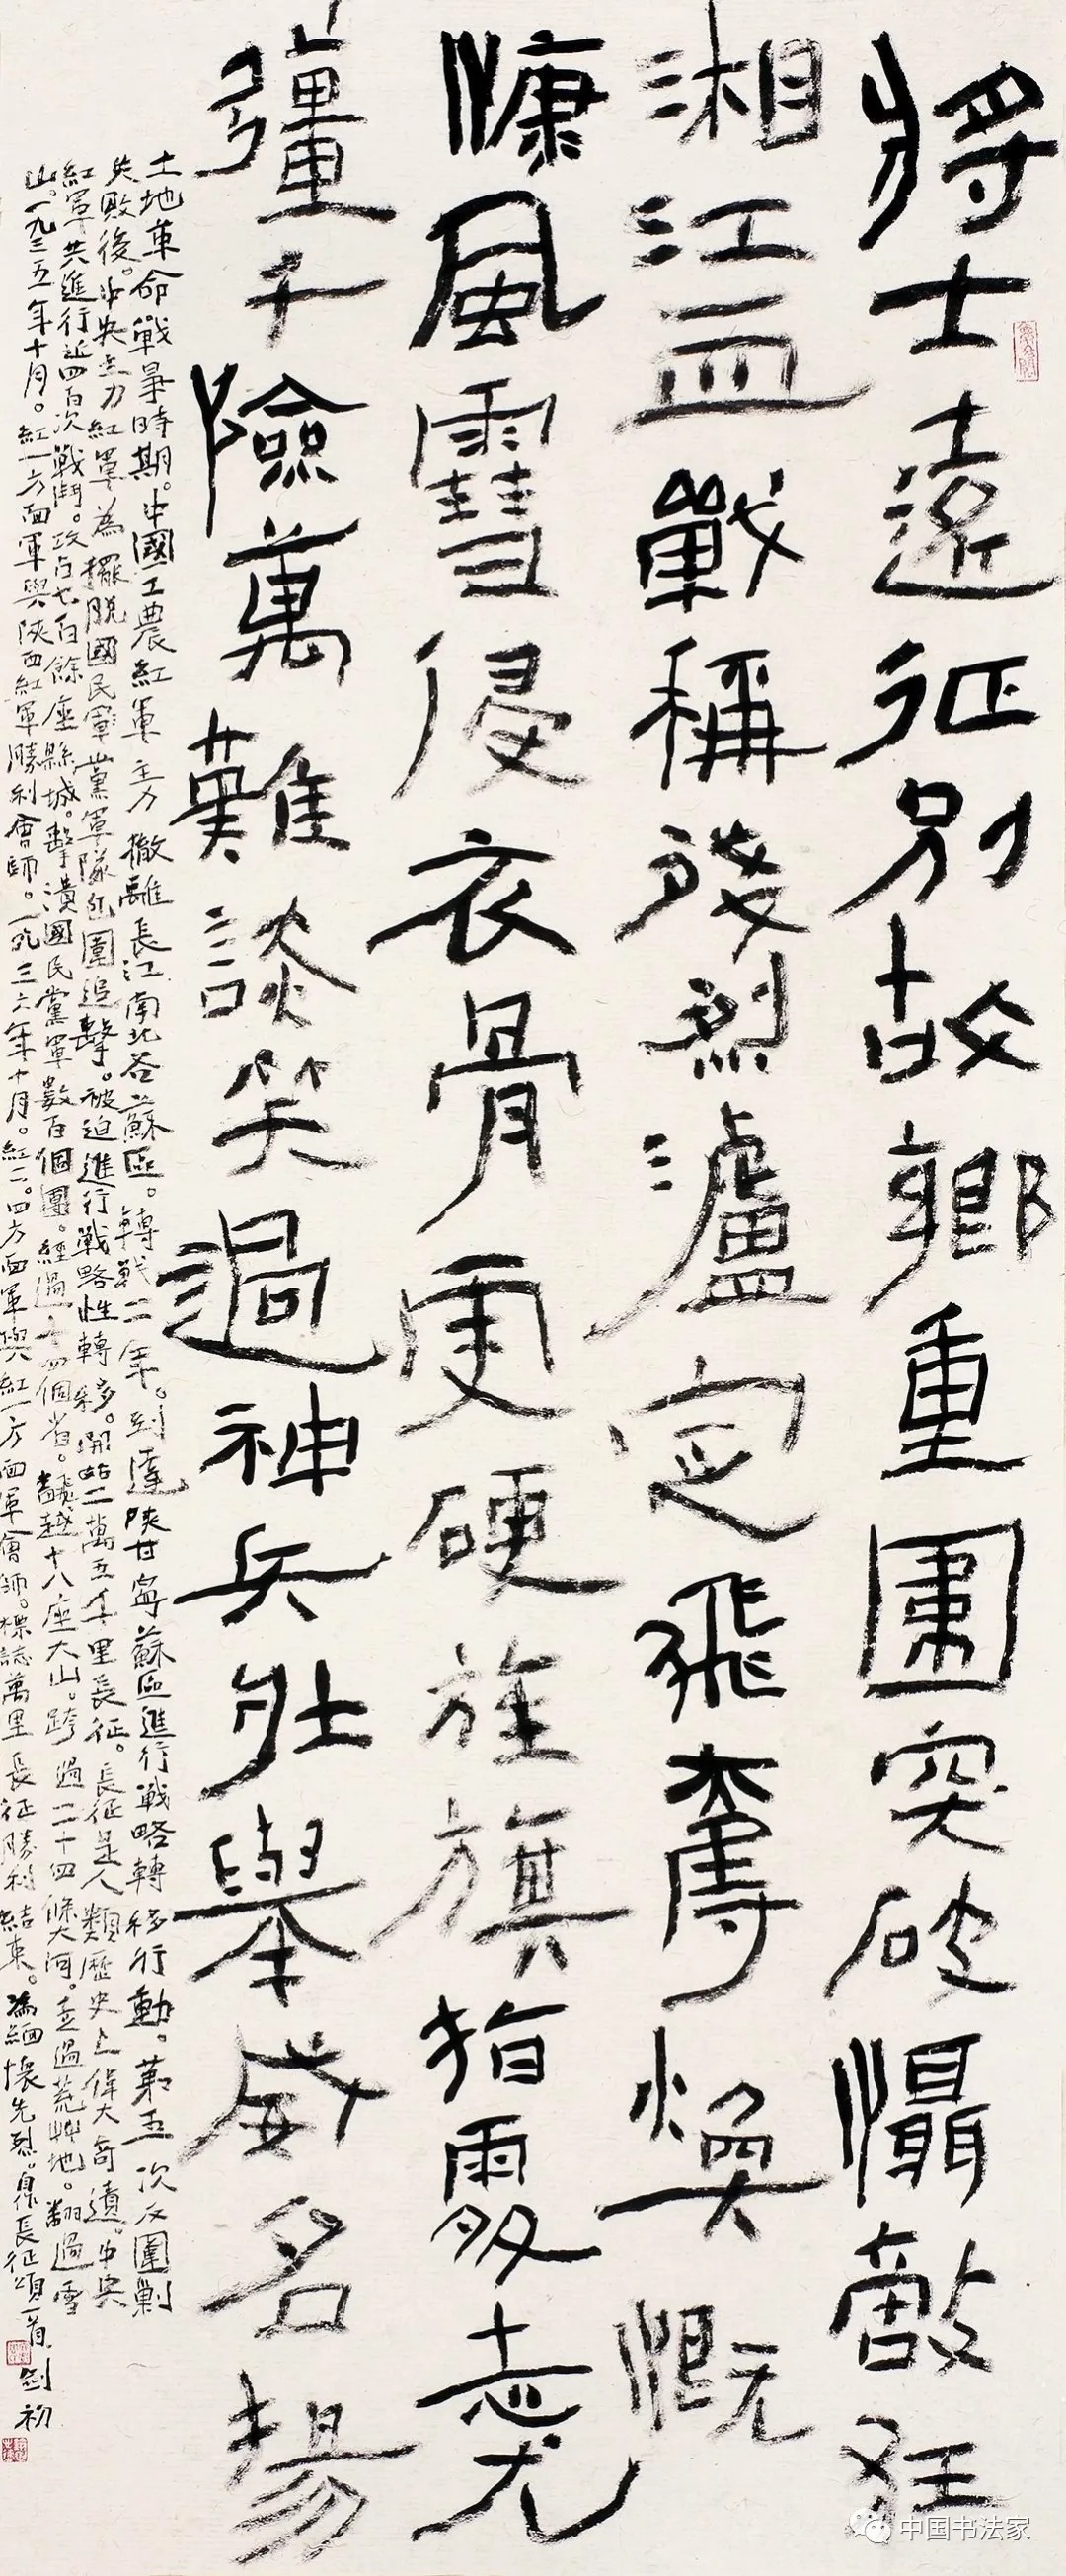 將士遠征別故鄉重圍突破懾敵狂
湘江血戰稱殘烈瀘定飛奪煥慨
慷風雪侵衣骨更硬旌旗指處志尤
彊千險萬難談笑過神兵壯舉威名揚
土地革命戰爭時期。中國工農紅軍主力撤離長江南北各蘇區。轉戰二年。到達陝甘寧蘇區進行戰略轉移行動。第五次反圍剿
失敗後。中央主力紅軍為擺脫國民黨軍隊包圍追擊。被迫進行戰略性轉移。開始二萬五千里長征。長征是人類歷史上偉大奇蹟。中央
紅軍共進行近四百次戰鬥。攻占七百餘座縣城。擊潰國民黨軍數百個團。經過十四個省。翻越十八座大山。跨過二十四條大河。走過荒艸地。翻過雪
山。一九三五年十月。紅一方面軍與陝西紅軍勝利會師。一九三六年十月。紅二。四方面軍與紅一方面軍會師。標誌萬里長征勝利結束。為緬懷先烈。得長征頌一首。劍初
中国书法家